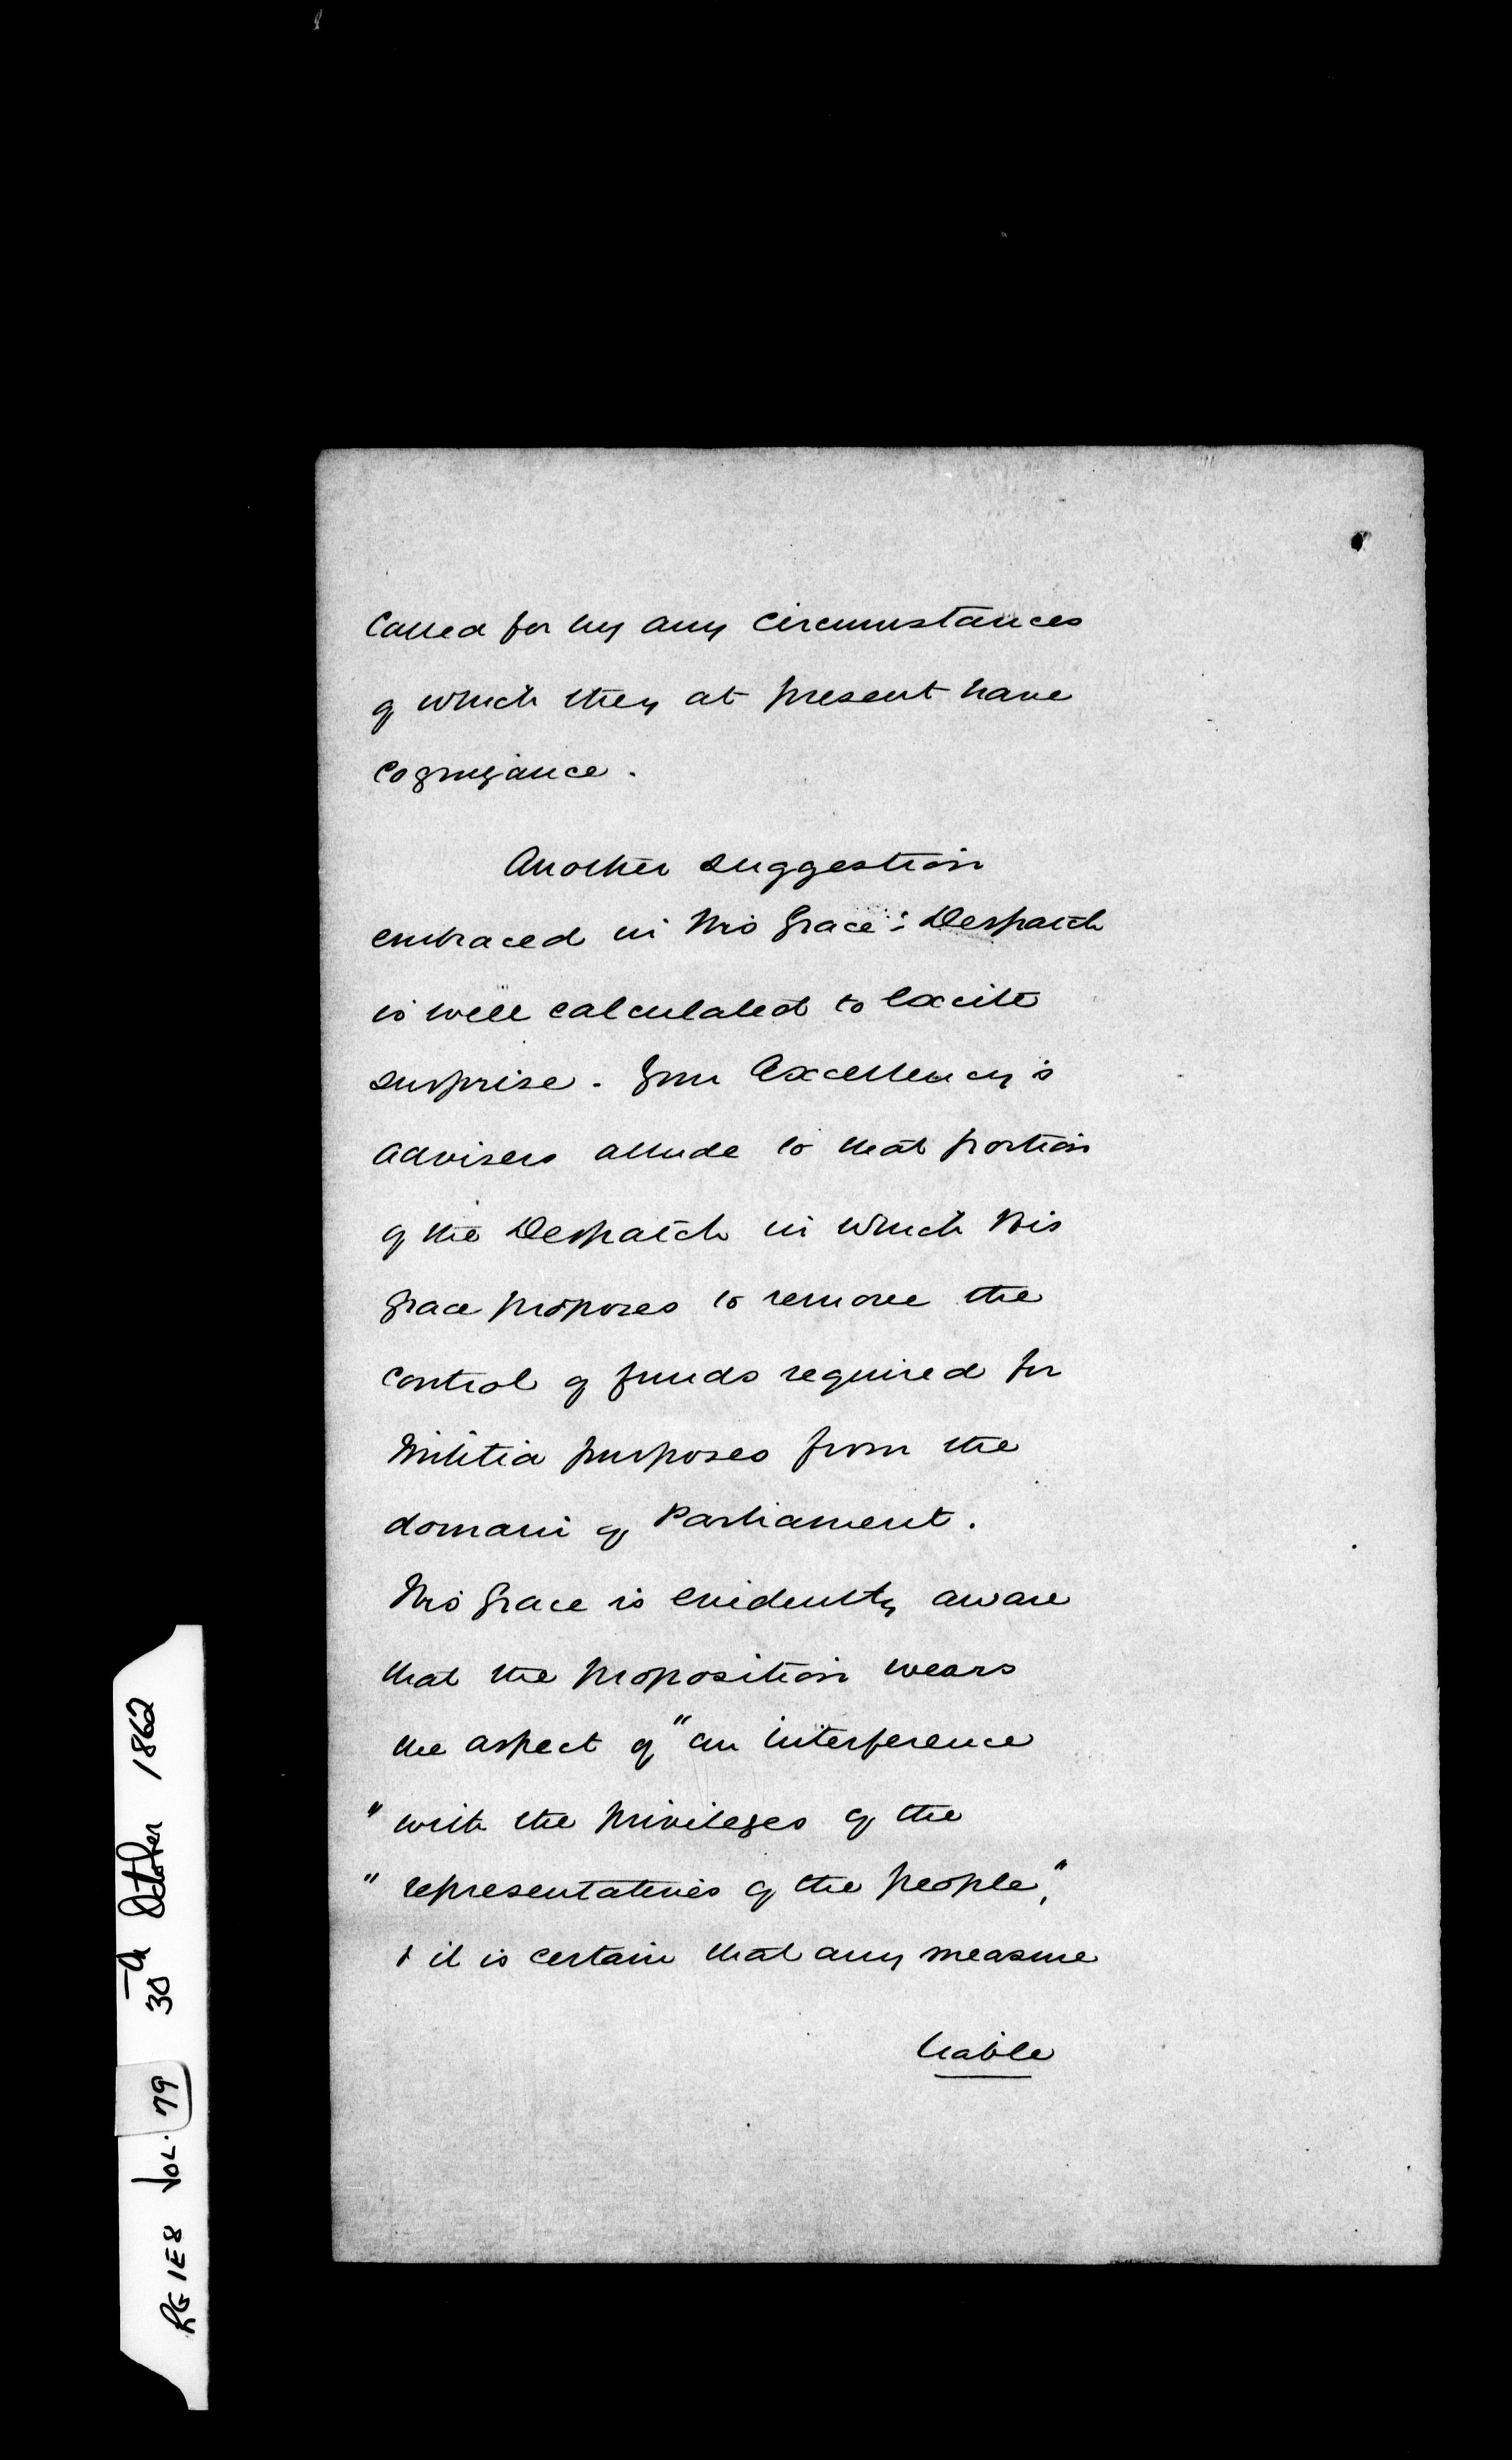 called for by any circumstances
of which they at present have
cognizance.
Another suggestion
embraced in His Grace's Despatch
is well calculated to excite
surprise. Your Excellency's
advisers allude to that portion
of the Despatch in which His
Grace proposes to remove the
control of funds required for
Militia purposes from the
domain of Parliament.
His Grace is evidently aware
that the proposition wears
the aspect of "an interference
"with the privileges of the
"representatives of the people",
& it is certain that any measure
liable
RG 1E8 VOL. 79 30th October 1862